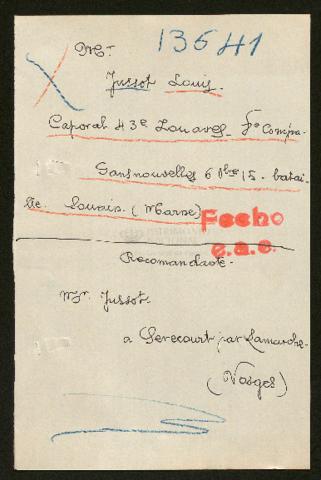 13541
Mr
Jussot Louis.
Caporal 43e Zouaves - Compa-
Sans nouvelles 6 8bre 15. batai-
lle Souais. (Marne)
Fecho
e.a.c.
Recomandacte.
Mr. Jussot.
a Serecourt par Lamarche-
(Vosges)